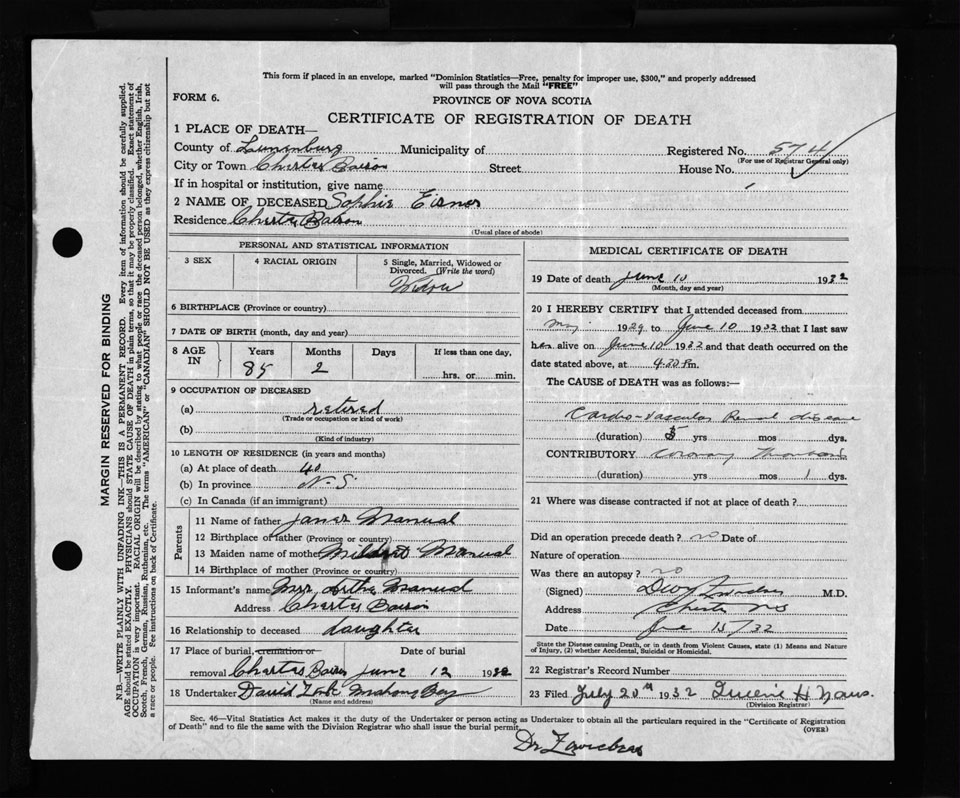 This form if placed in an envelope, marked "Dominion Statistics—Free, penalty for improper use, $300," and properly addressed
will pass through the Mail "FREE"
FORM 6.
PROVINCE OF NOVA SCOTIA
CERTIFICATE OF REGISTRATION OF DEATH
1 PLACE OF DEATH—
County of Lunenburg Municipality of Registered No. 574
(For use of Registrar General only)
City or Town Chester Street House No.
If in hospital or institution, give name
2 NAME OF DECEASED Sophie Eisnor
Residence Chester
(Usual place of abode)
PERSONAL AND STATISTICAL INFORMATION
3 SEX 4 RACIAL ORIGIN 5 Single, Married, Widowed or
Divorced. (Write the word)
Widow
6 BIRTHPLACE (Province or country)
7 DATE OF BIRTH (month, day and year)
8 AGE IN Years Months Days If less than one day,
85 2 hrs. or min.
9 OCCUPATION OF DECEASED
(a) retired
(Trade or occupation or kind of work)
(b)
(Kind of industry)
10 LENGTH OF RESIDENCE (in years and months)
(a) At place of death 40
(b) In province N.S.
(c) In Canada (if an immigrant)
Parents
11 Name of father James Manual
12 Birthplace of father (Province or country)
13 Maiden name of mother Manual
14 Birthplace of mother (Province or country)
15 Informant's name Mrs Manual
Address Chester
16 Relationship to deceased daughter
17 Place of burial, cremation or Date of burial
removal Chester June 12 1932
18 Undertaker David Mahone Bay
(Name and address)
MEDICAL CERTIFICATE OF DEATH
19 Date of death June 10 1932
(Month, day and year)
20 I HEREBY CERTIFY that I attended deceased from
May 1929 to June 10 1932 that I last saw
her alive on June 10 1932 and that death occurred on the
date stated above, at m.
The CAUSE of DEATH was as follows:
Cardio-vascular Renal disease
(duration) 5 yrs mos dys.
CONTRIBUTORY Coronary Thrombosis
(duration) yrs mos 1 dys.
21 Where was disease contracted if not at place of death?
Did an operation precede death? no Date of
Nature of operation
Was there an autopsy? no
(Signed) M.D.
Address Chester NS
Date June 15/32
State the Disease causing Death, or in death from Violent Causes, state (1) Means and Nature
of Injury, (2) whether Accidental, Suicidal or Homicidal.
22 Registrar's Record Number
23 Filed July 20th 1932
(Division Registrar)
Sec. 46—Vital Statistics Act makes it the duty of the Undertaker or person acting as Undertaker to obtain all the particulars required in the "Certificate of Registration
of Death" and to file the same with the Division Registrar who shall issue the burial permit.
(OVER)
Dr
MARGIN RESERVED FOR BINDING
N.B.—WRITE PLAINLY WITH UNFADING INK—THIS IS A PERMANENT RECORD. Every item of information should be carefully supplied.
AGE should be stated EXACTLY. PHYSICIANS should STATE CAUSE OF DEATH in plain terms, so that it may be properly classified. Exact statement of
OCCUPATION is very important. RACIAL ORIGIN will be described by stating to what people or race the deceased person belonged, whether English, Irish,
Scotch, French, German, Russian, Ruthenian, etc. The terms "AMERICAN" or "CANADIAN" SHOULD NOT BE USED as they express citizenship but not
a race or people. See instructions on back of Certificate.